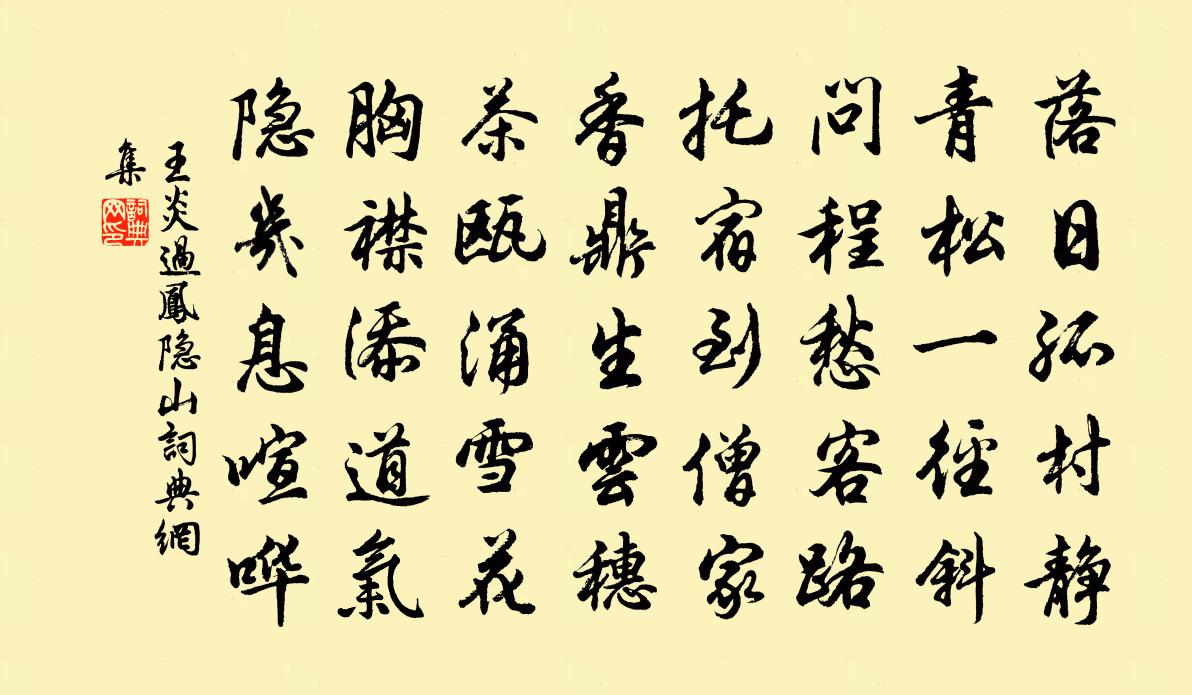 落日孤村静
青松一径斜
问程愁客路
托宿到僧家
香鼎生雲穗
茶瓯涌雪花
胸襟添道氣
隐幾息喧哗
王炎過鳳隐山詞典網
集
詞典
网印